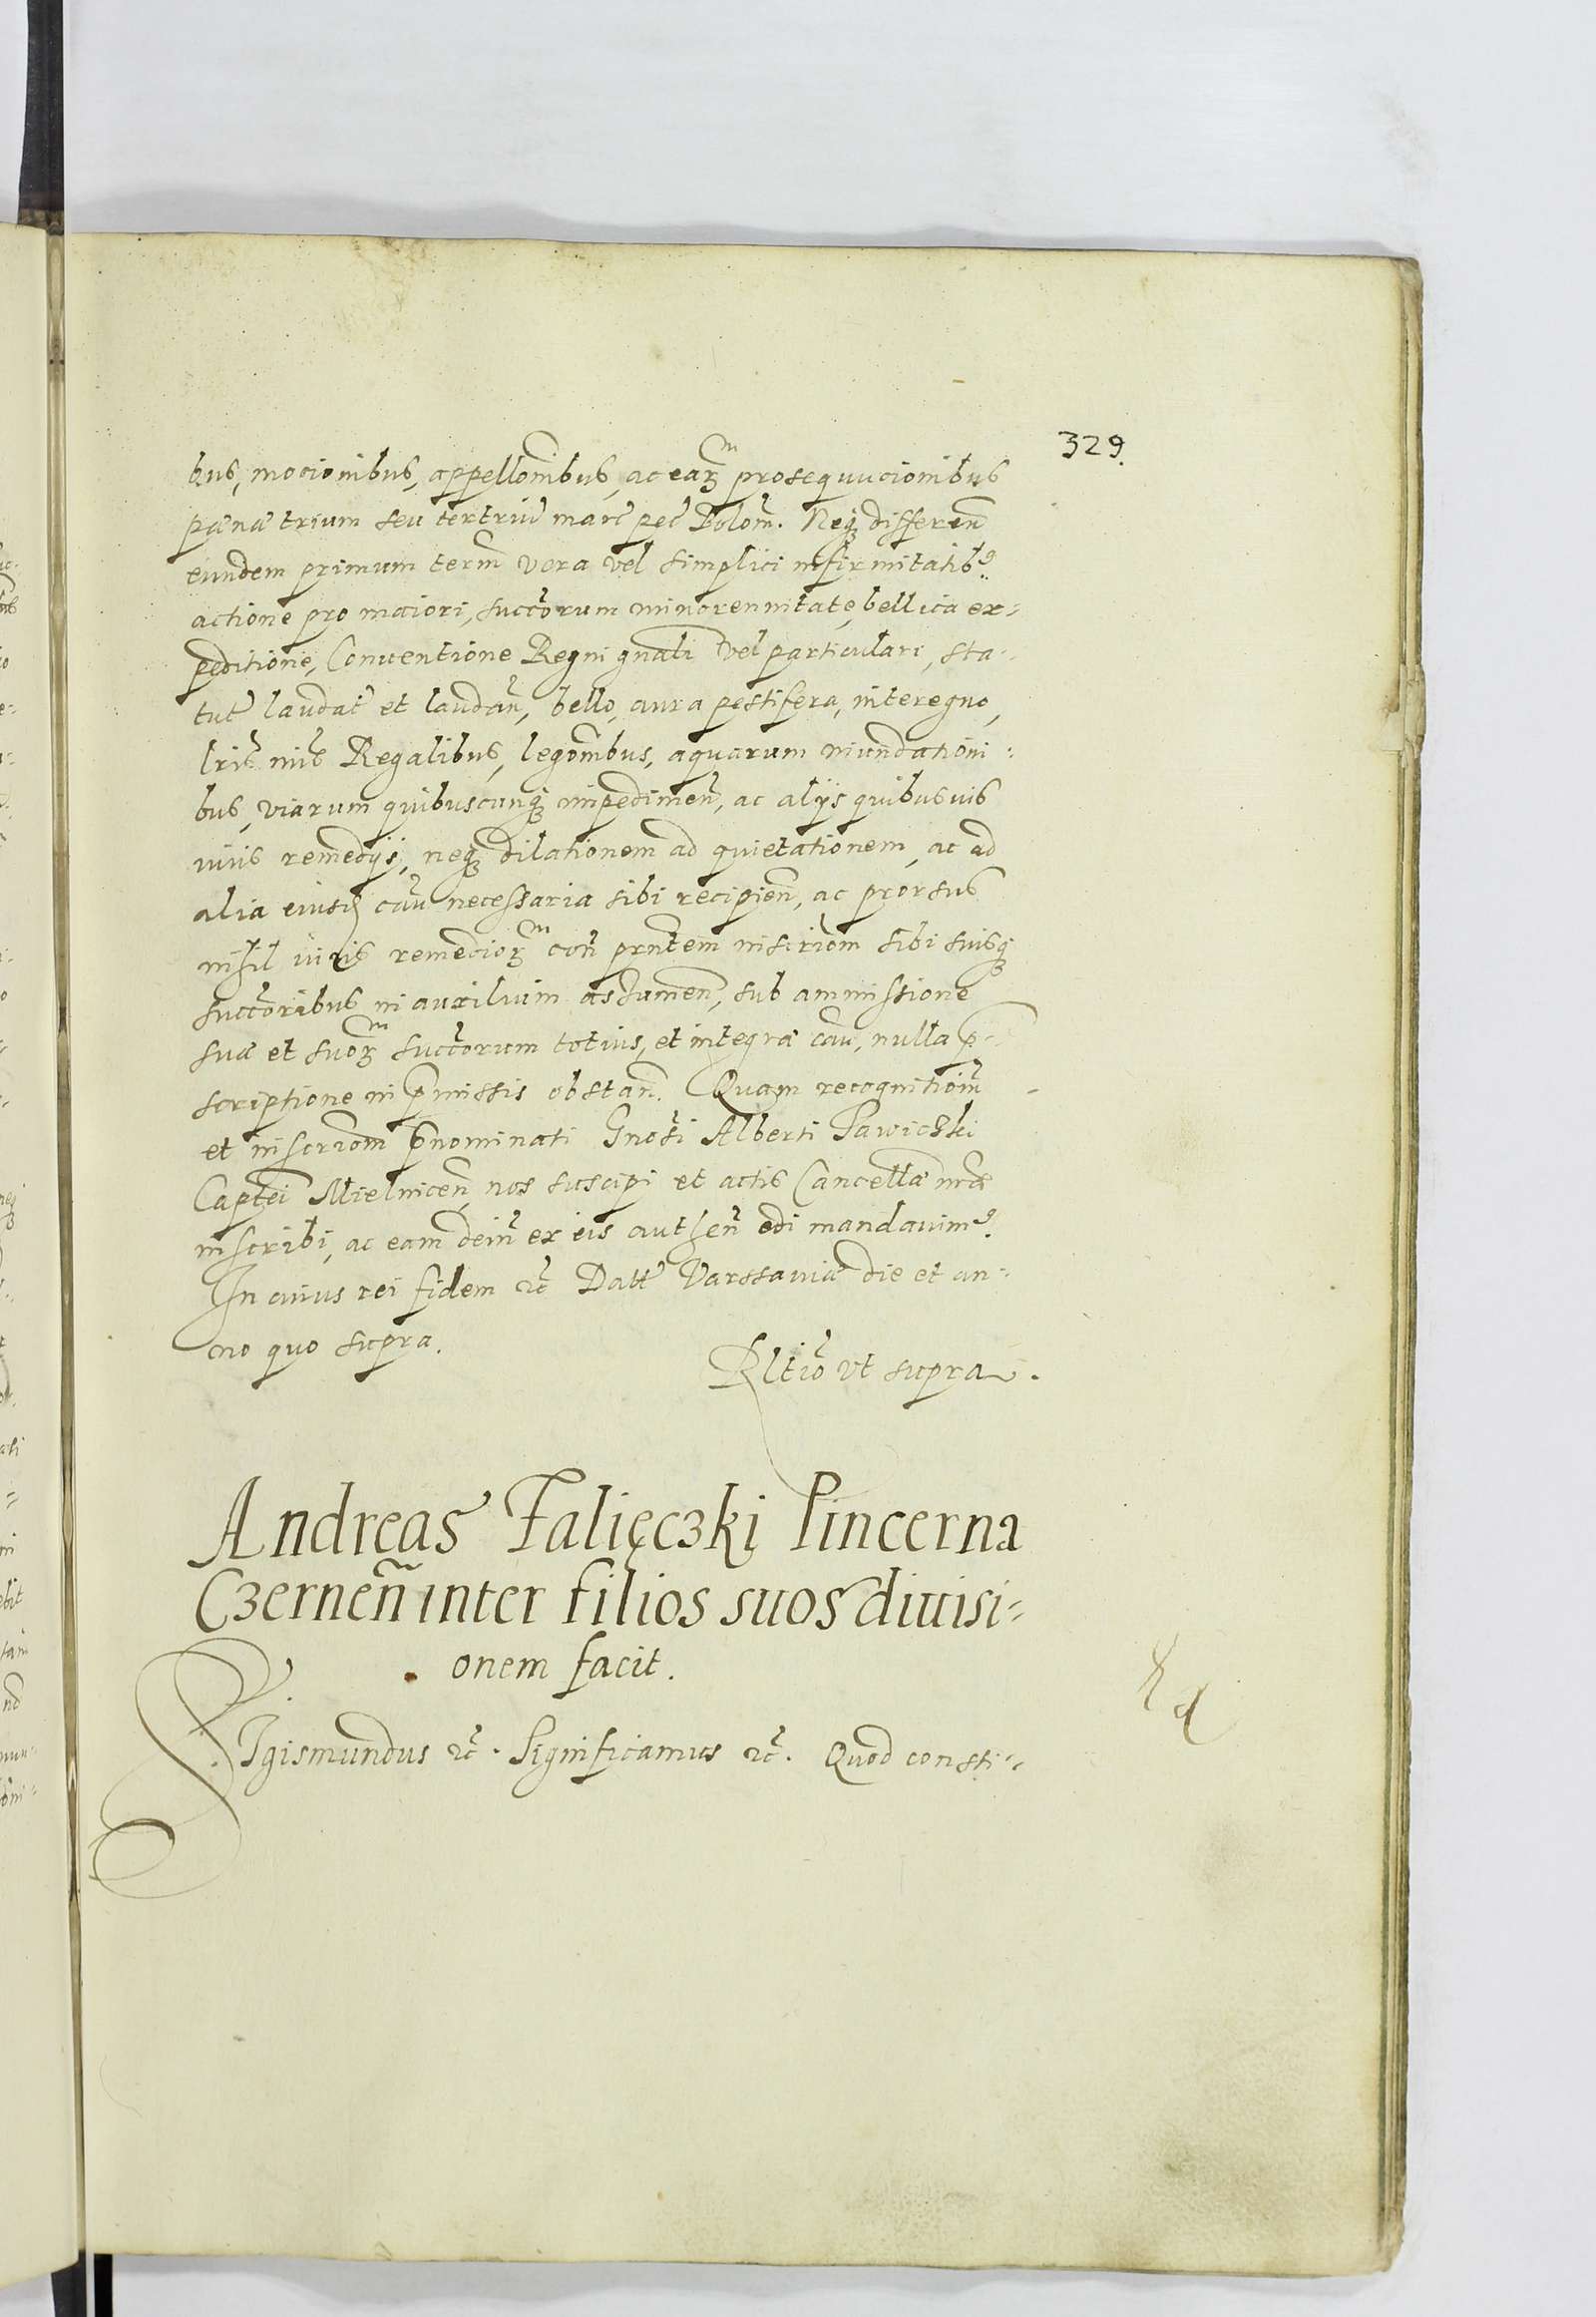 329.
bus, mocionibus, appellõnibus, ac eaꝝ prosequucionibus
pœnæ trium seu tertriũ marc̃ pec̃ Polõm. Neqꝫ differeñ
eundem primum term̃ vera vel simplici infirmitatibꝰ
actione pro maiori, succ̃orum minorennitate, bellica ex-
peditione, Conventione Regni gn̄ali vel particulari, sta-
tut̃ laudat̃ et laudañ, bello, aura pestifera, interegno,
lr̃is nr̃is Regalibus, legõnibus, aquarum inundationi-
bus, viarum quibuscunqꝫ impedimeñ, ac alijs quibusvis
iuris remedijs, neqꝫ dilationem ad quietationem, ac ad
alia eiusd cãu necessaria sibi recipieñ, ac prorsus
nihil iuris remedioꝝ con̄ prn̄tem inscriõm sibi suisqꝫ
succ̃oribus in auxilium assumeñ, sub ammissione
suæ et suoꝝ succ̃orum totius, et integræ cãu, nulla p̄-
scriptione in p̄missis obstañ. Quam recognitiõm
et inscriõm p̄nominati Gnõsi Alberti Sawiczki
Captēi Mielniceñ, nos suscipi et actis Cancellæ nr̃æ
inscribi, ac eam dein̄ ex eis autheñ edi mandavimꝰ.
In cuius rei fidem ꝛc̃ Datt̃ Varssaviæ die et an-
no quo supra.
Rltiõ ut supra.
Andreas Falięczki Pincerna
Czerneñ inter filios suos divisi-
onem facit.
Sigismundus ꝛc̃. Significamus ꝛc̃. Quod consti-